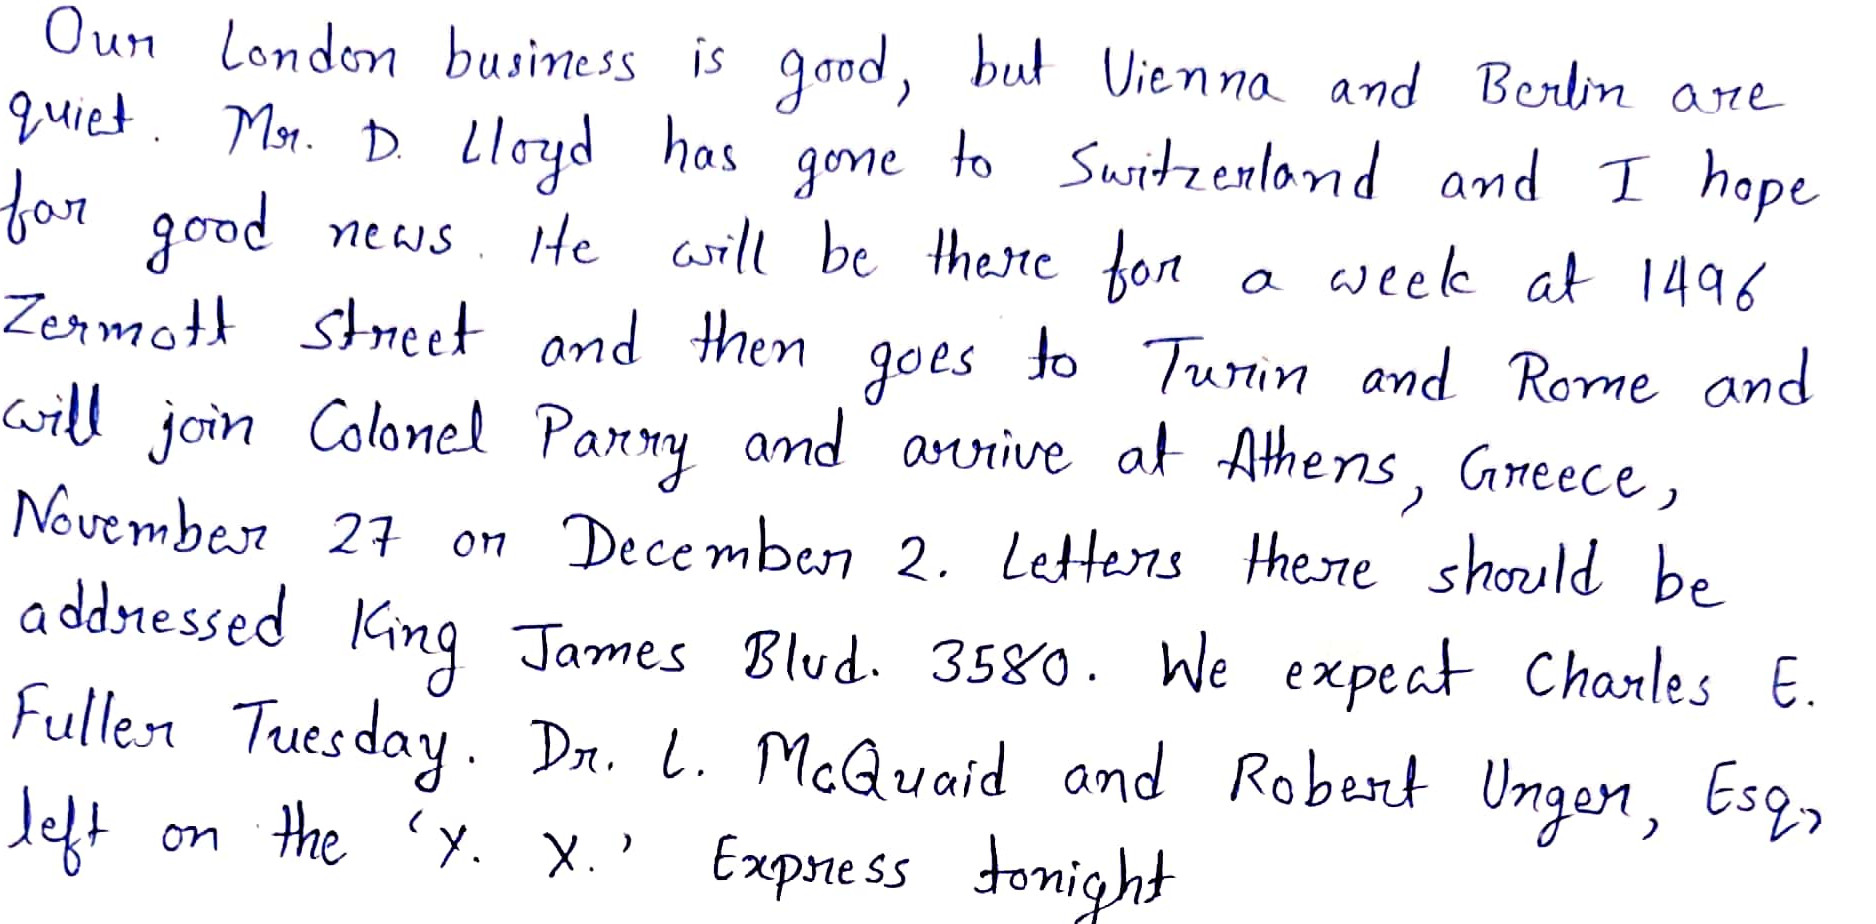 Our London business is good, but Vienna and Berlin are
quiet. Mr. D. Lloyd has gone to Switzerland and I hope
for good news. He will be there for a week at 1496
Zermott Street and then goes to Turin and Rome and
will join Colonel Parry and arrive at Athens, Greece,
November 27 or December 2. Letters there should be
addressed King James Blvd. 3580. We expect Charles E.
Fuller Tuesday. Dr. L. McQuaid and Robert Unger, Esq,,
left on the 'Y. X.' Express tonight